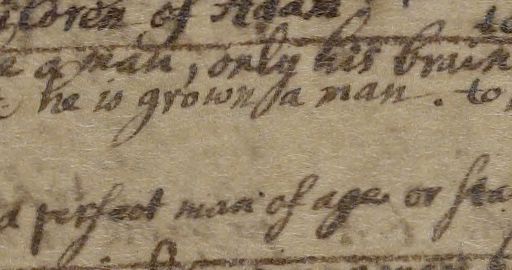 ildren of Adam to
e a man, only his brain
he is grown a man. to
d perfect man of age or sta